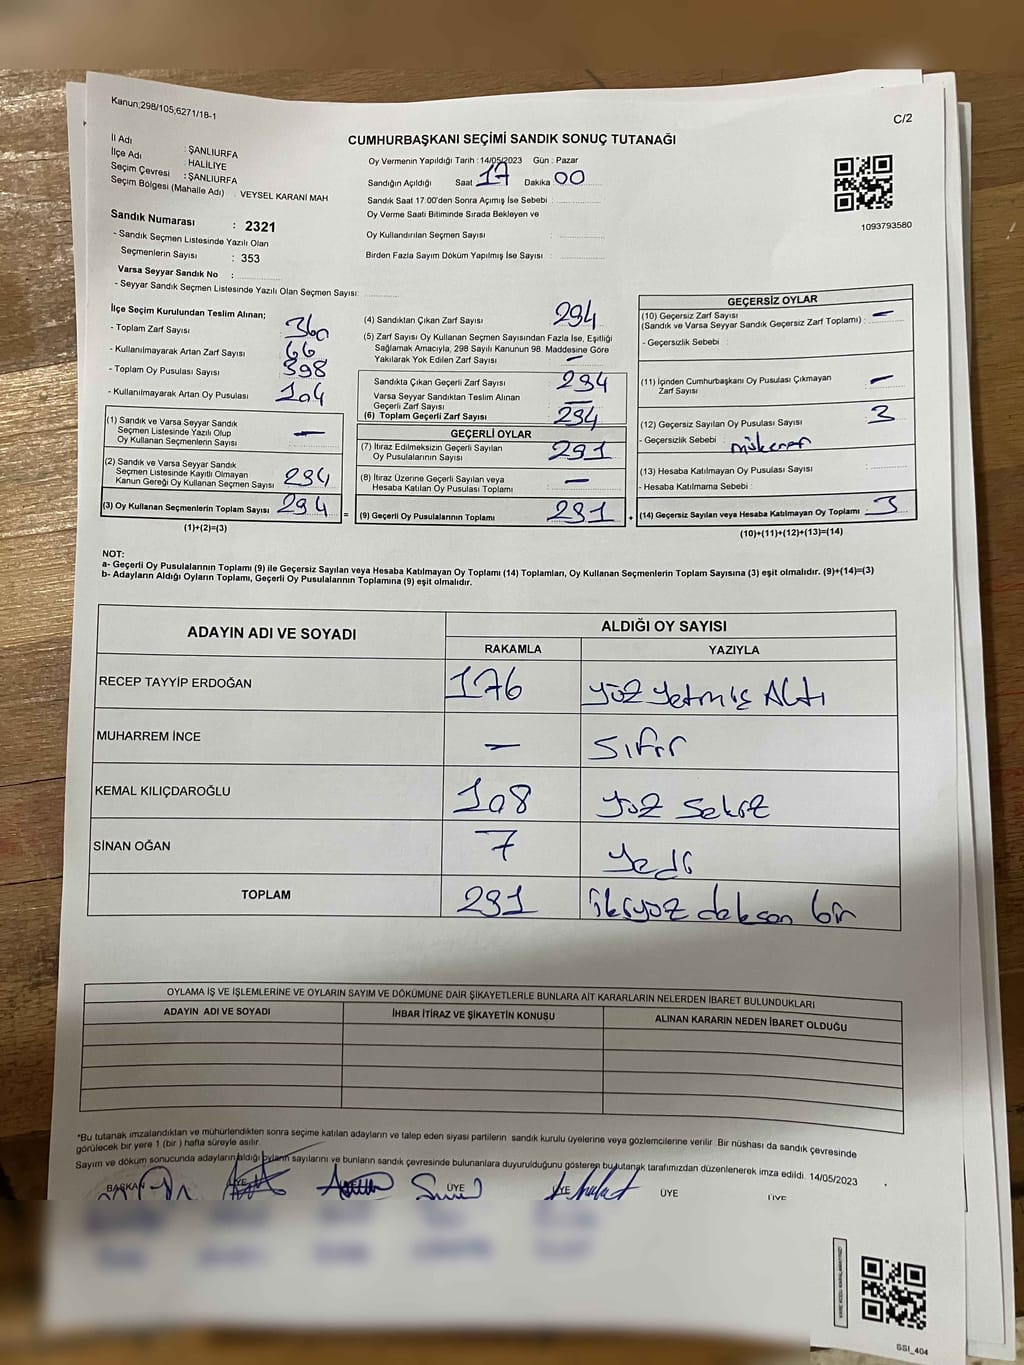 Kanun;298/105;6271/18-1
C/2
CUMHURBAŞKANI SEÇİMİ SANDIK SONUÇ TUTANAĞI
İl Adı : ŞANLIURFA
İlçe Adı : HALİLİYE
Seçim Çevresi : ŞANLIURFA
Seçim Bölgesi (Mahalle Adı) : VEYSEL KARANİ MAH
Sandık Numarası : 2321
- Sandık Seçmen Listesinde Yazılı Olan
Seçmenlerin Sayısı : 353
Varsa Seyyar Sandık No :
- Seyyar Sandık Seçmen Listesinde Yazılı Olan Seçmen Sayısı:
Oy Vermenin Yapıldığı Tarih : 14/05/2023 Gün : Pazar
Sandığın Açıldığı Saat 17 Dakika 00
Sandık Saat 17.00'den Sonra Açımış İse Sebebi :
Oy Verme Saati Bitiminde Sırada Bekleyen ve
Oy Kullandırılan Seçmen Sayısı :
Birden Fazla Sayım Döküm Yapılmış İse Sayısı :
1093793580
İlçe Seçim Kurulundan Teslim Alınan;
- Toplam Zarf Sayısı 360
- Kullanılmayarak Artan Zarf Sayısı 66
- Toplam Oy Pusulası Sayısı 398
- Kullanılmayarak Artan Oy Pusulası 104
(1) Sandık ve Varsa Seyyar Sandık
Seçmen Listesinde Yazılı Olup
Oy Kullanan Seçmenlerin Sayısı : —
(2) Sandık ve Varsa Seyyar Sandık
Seçmen Listesinde Kayıtlı Olmayan
Kanun Gereği Oy Kullanan Seçmen Sayısı : 294
(3) Oy Kullanan Seçmenlerin Toplam Sayısı : 294 =
(1)+(2)=(3)
(4) Sandıktan Çıkan Zarf Sayısı 294
(5) Zarf Sayısı Oy Kullanan Seçmen Sayısından Fazla İse, Eşitliği
Sağlamak Amacıyla, 298 Sayılı Kanunun 98. Maddesine Göre
Yakılarak Yok Edilen Zarf Sayısı —
Sandıkta Çıkan Geçerli Zarf Sayısı 294
Varsa Seyyar Sandıktan Teslim Alınan
Geçerli Zarf Sayısı —
(6) Toplam Geçerli Zarf Sayısı 294
GEÇERLİ OYLAR
(7) İtiraz Edilmeksizin Geçerli Sayılan
Oy Pusulalarının Sayısı 291
(8) İtiraz Üzerine Geçerli Sayılan veya
Hesaba Katılan Oy Pusulası Toplamı —
(9) Geçerli Oy Pusulalarının Toplamı 291 +
GEÇERSİZ OYLAR
(10) Geçersiz Zarf Sayısı
(Sandık ve Varsa Seyyar Sandık Geçersiz Zarf Toplamı) : —
- Geçersizlik Sebebi :
(11) İçinden Cumhurbaşkanı Oy Pusulası Çıkmayan
Zarf Sayısı —
(12) Geçersiz Sayılan Oy Pusulası Sayısı 3
- Geçersizlik Sebebi : mükerrer
(13) Hesaba Katılmayan Oy Pusulası Sayısı
- Hesaba Katılmama Sebebi :
(14) Geçersiz Sayılan veya Hesaba Katılmayan Oy Toplamı 3
(10)+(11)+(12)+(13)=(14)
NOT:
a- Geçerli Oy Pusulalarının Toplamı (9) ile Geçersiz Sayılan veya Hesaba Katılmayan Oy Toplamı (14) Toplamları, Oy Kullanan Seçmenlerin Toplam Sayısına (3) eşit olmalıdır. (9)+(14)=(3)
b- Adayların Aldığı Oyların Toplamı, Geçerli Oy Pusulalarının Toplamına (9) eşit olmalıdır.
ADAYIN ADI VE SOYADI ALDIĞI OY SAYISI
RAKAMLA YAZIYLA
RECEP TAYYİP ERDOĞAN 176 yüz yetmiş Altı
MUHARREM İNCE — Sıfır
KEMAL KILIÇDAROĞLU 108 yüz Sekiz
SİNAN OĞAN 7 yedi
TOPLAM 291 ikiyüz doksan bir
OYLAMA İŞ VE İŞLEMLERİNE VE OYLARIN SAYIM VE DÖKÜMÜNE DAİR ŞİKAYETLERLE BUNLARA AİT KARARLARIN NELERDEN İBARET BULUNDUKLARI
ADAYIN ADI VE SOYADI İHBAR İTİRAZ VE ŞİKAYETİN KONUSU ALINAN KARARIN NEDEN İBARET OLDUĞU
*Bu tutanak imzalandıktan ve mühürlendikten sonra seçime katılan adayların ve talep eden siyasi partilerin sandık kurulu üyelerine veya gözlemcilerine verilir. Bir nüshası da sandık çevresinde
görülecek bir yere 1 (bir ) hafta süreyle asılır.
Sayım ve döküm sonucunda adayların aldığı oyların sayılarını ve bunların sandık çevresinde bulunanlara duyurulduğunu gösteren bu tutanak tarafımızdan düzenlenerek imza edildi. 14/05/2023
BAŞKAN ÜYE ÜYE ÜYE ÜYE ÜYE
SSI_404